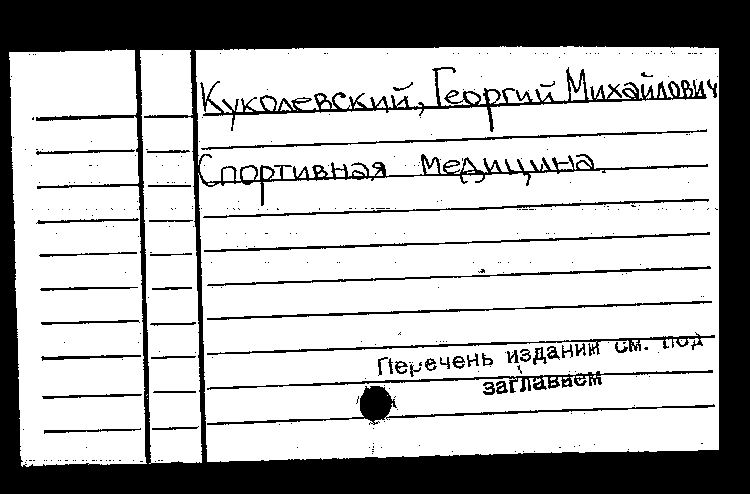 Куколевский, Георгий Михайлович
Спортивная медицина.
Перечень изданий см. под
заглавием